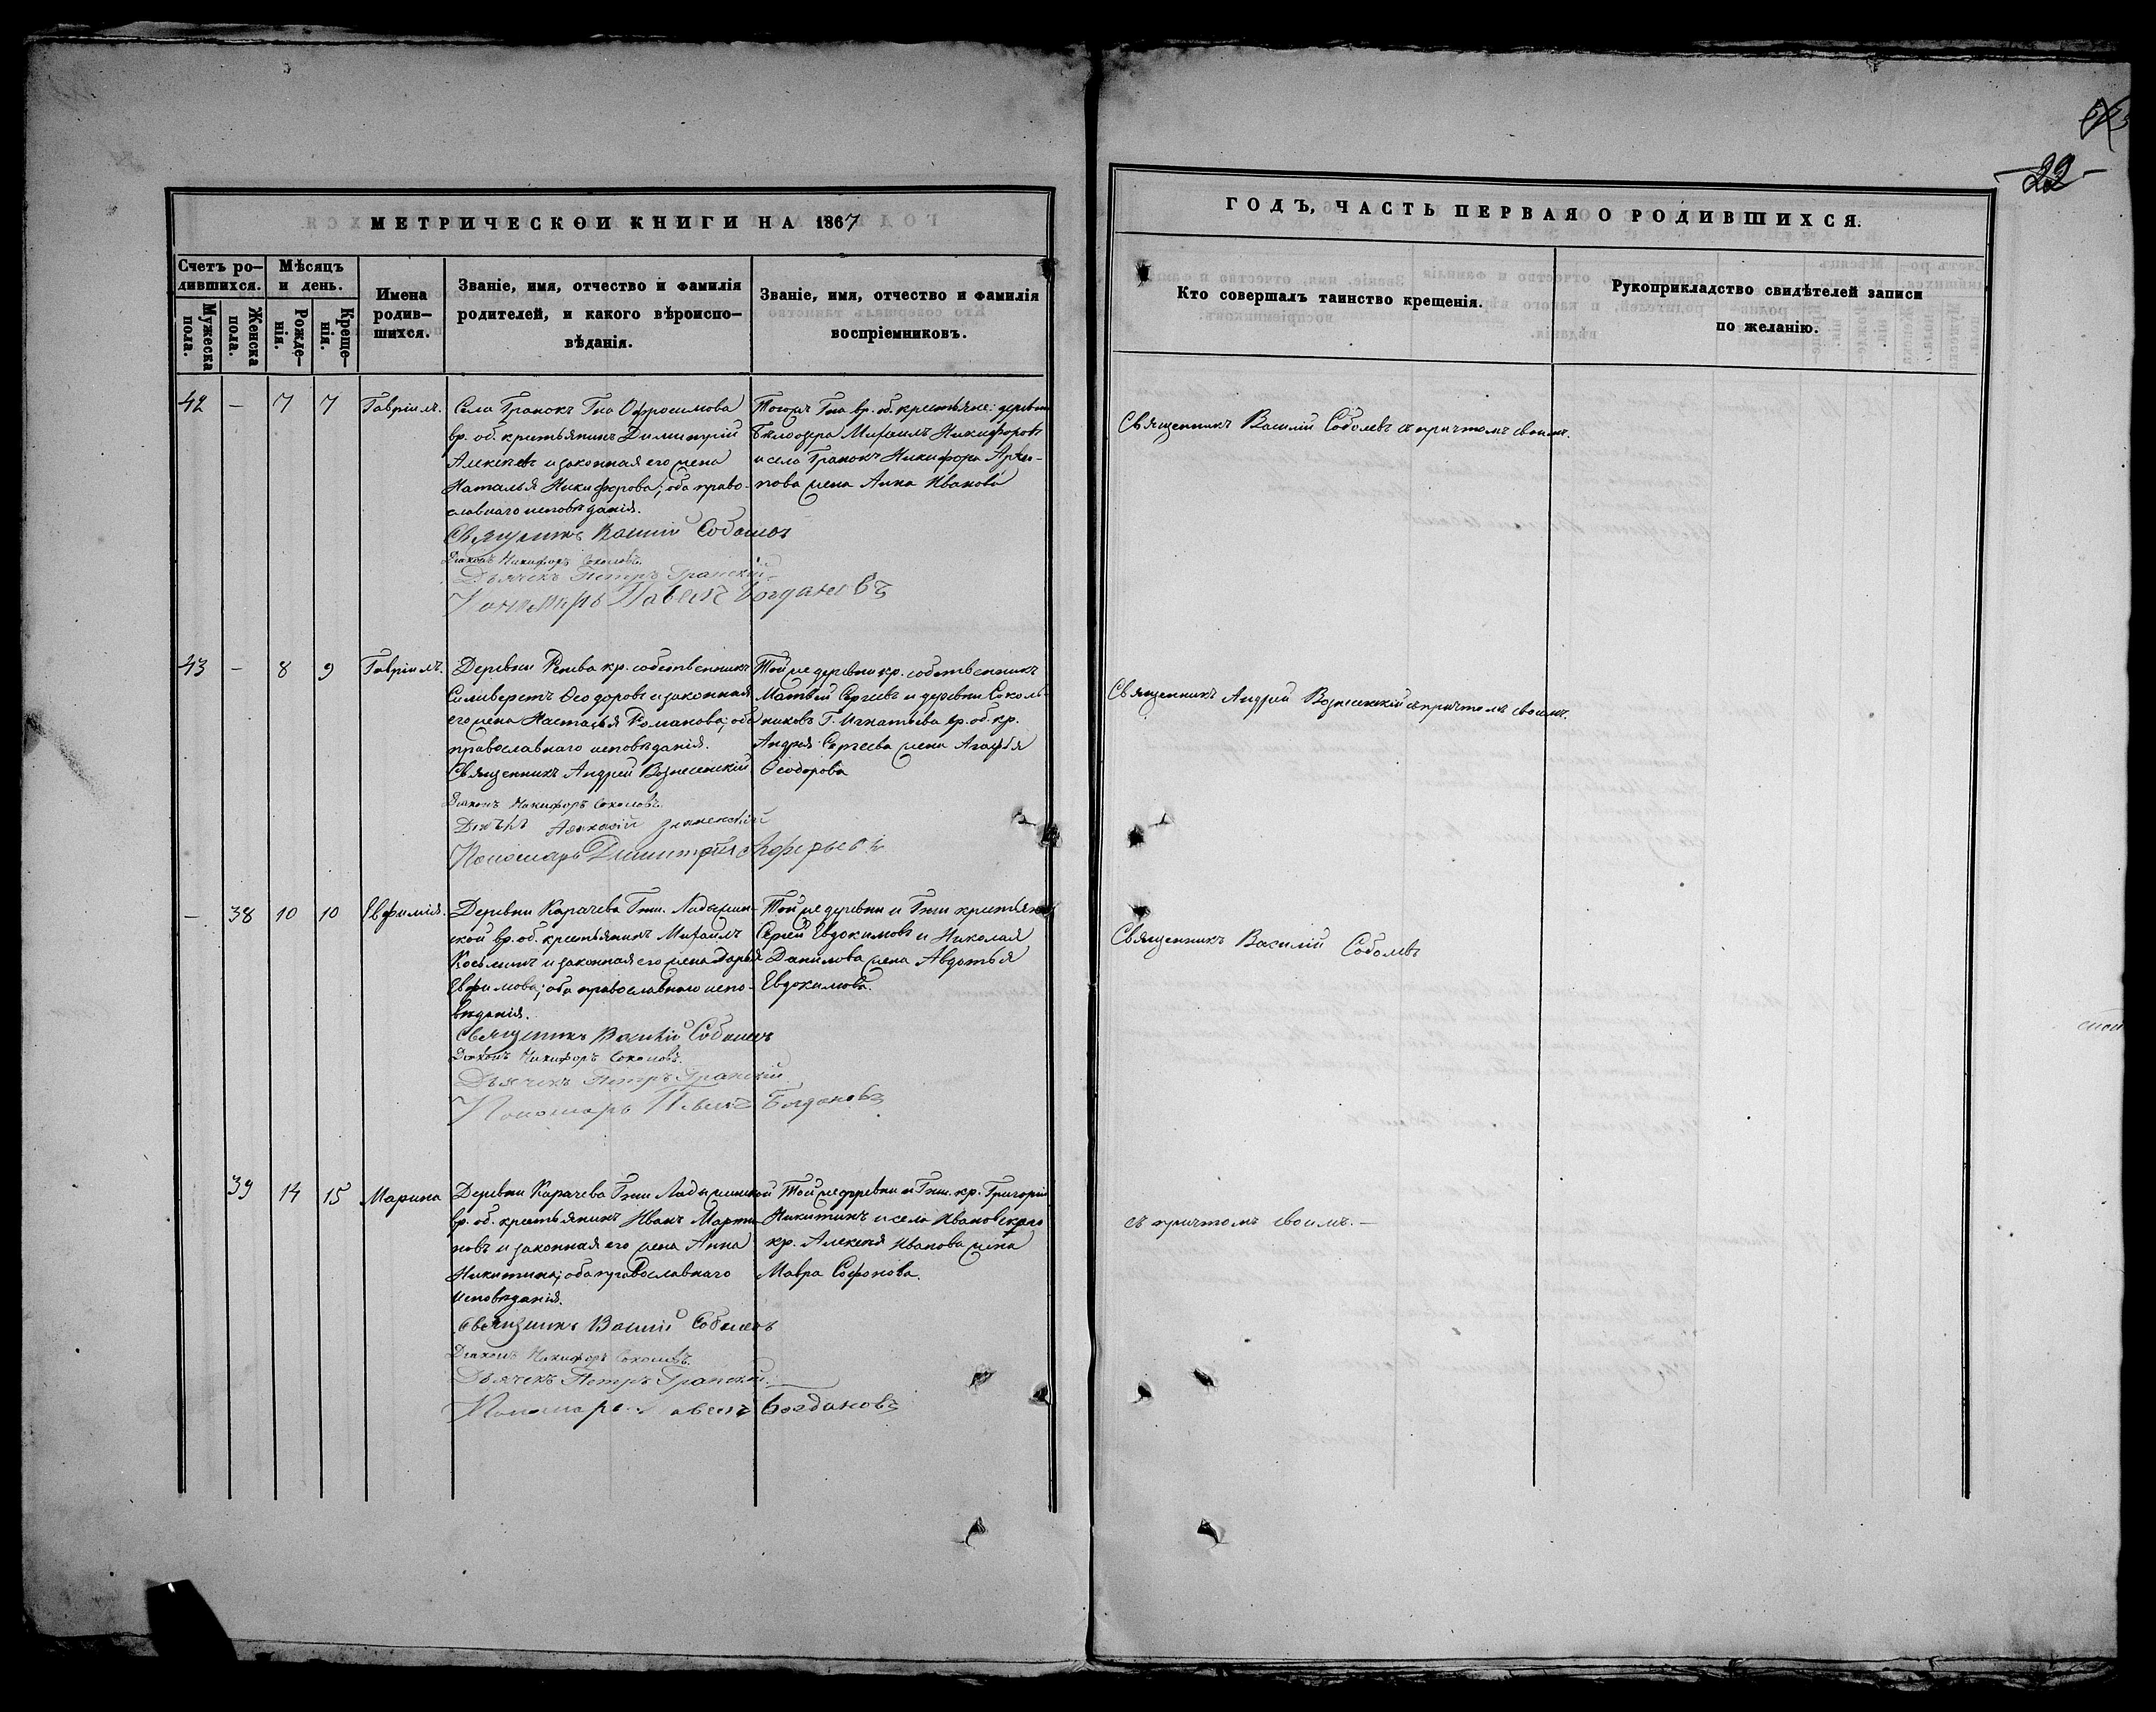 22
МЕТРИЧЕСКОЙ КНИГИ НА 1867
Счетъ ро-
дившихся.
Мѣсяцъ
и день.
Мужеска
пола.
Женска
пола.
Рожде-
нія.
Креще-
нія.
Имена
родив-
шихся.
Званіе, имя, отчество и фамилія
родителей, и какого вѣроиспо-
вѣданія.
Званіе, имя, отчество и фамилія
воспріемниковъ.
42 — 7 7 Гавріилъ.
Села Гранокъ Гна Офросимова
вр. об. крестьянинъ Димитрій
Алексѣевъ и законная его жена
Наталья Никифорова; оба право-
славнаго исповѣданія.
Священникъ Василій Соболевъ
Діаконъ Никифоръ Соколовъ.
Дьячекъ Петръ Гранскій
Пономарь Павелъ Богдановъ
Тогожъ Гна вр. об. крестьяне: деревни
Бѣлоозера Михаилъ Никифоровъ
и села Гранокъ Никифора Архи-
пова жена Анна Иванова
43 — 8 9 Гавріилъ.
Деревни Репева кр. собственникъ
Силиверстъ Ѳеодоровъ и законная
его жена Наталья Романова; оба
православнаго исповѣданія.
Священникъ Андрей Вознесенскій
Діаконъ Никифоръ Соколовъ.
Пономарь Димитрій
Той же деревни кр. собственникъ
Матвей Сергеевъ и деревни Соколь-
никовъ Г. Игнатьева вр. об. кр.
Андрея Сергеева жена Агафья
Ѳеодорова
— 38 10 10 Евфимія.
Деревни Карачева Гжи Ладыжин-
ской вр. об. крестьянинъ Михаилъ
Косьминъ и законная его жена Дарья
Евфимова; оба православнаго испо-
вѣданія.
Священникъ Василій Соболевъ
Діаконъ Никифоръ Соколовъ.
Дьячекъ Петръ Гранскій
Пономарь Павелъ Богдановъ
Той же деревни и Гжи крестьяне
Сергей Евдокимовъ и Николая
Данилова жена Авдотья
Евдокимова.
39 14 15 Марина
Деревни Карачева Гжи Ладыжинской
вр. об. крестьянинъ Иванъ Марты-
новъ и законная его жена Анна
Никитина; оба православнаго
исповѣданія.
Священникъ Василій Соболевъ
Діаконъ Никифоръ Соколовъ.
Дьячекъ Петръ Гранскій.
Пономарь Павелъ Богдановъ
Той же деревни и Гжи. кр. Григорій
Никитинъ и села Ивановскаго
кр. Алексѣя Иванова жена
Мавра Софонова.
ГОДЪ, ЧАСТЬ ПЕРВАЯ О РОДИВШИХСЯ.
Кто совершалъ таинство крещенія.
Рукоприкладство свидѣтелей записи
по желанію.
Священникъ Василій Соболевъ съ причтомъ своимъ.
Священникъ Андрей Вознесенскій съ причтомъ своимъ.
Священникъ Василій Соболевъ
съ причтомъ своимъ. —